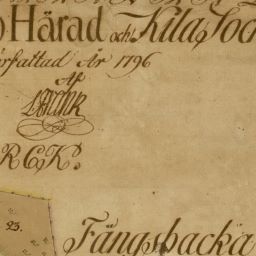 Härad och Kila Soc
rfattad År 1796
Af
R C K:
23.
Fångsbacka